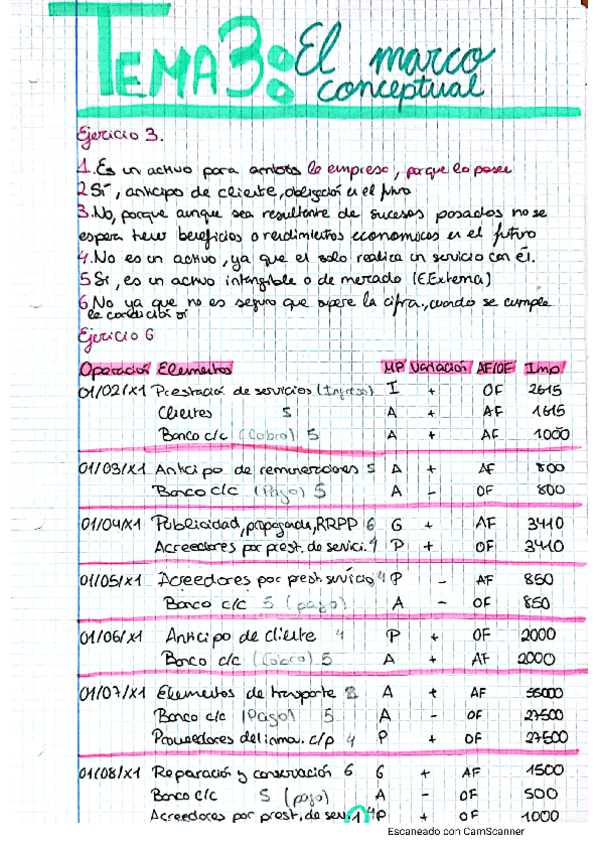 TEMA 3: El marco conceptual
Ejercicio 3.
1. Es un activo para ambos la empresa, porque lo posee
2 Sí, anticipo de cliente, obligación en el futuro
3. No, porque aunque sea resultante de sucesos pasados no se
espera tener beneficios o rendimientos económicos en el futuro
4. No es un activo, ya que el solo realiza un servicio con él.
5 Si, es un activo intangible o de mercado (EExterna)
6. No ya que no es seguro que supere la cifra, cuando se cumpla
la condición si
Ejercicio 6
Operación Elementos MP Variación AF/OF Imp
01/02/X1 Prestación de servicios (Ingreso) I + OF 2615
Clientes 5 A + AF 1615
Banco c/c (Cobro) 5 A + AF 1000
01/03/X1 Anticipo de remuneraciones 5 A + AF 800
Banco c/c (Pago) 5 A - OF 800
01/04/X1 Publicidad, propaganda, RRPP 6 G + AF 3410
Acreedores por prest. de servici. 4 P + OF 3410
01/05/X1 Acreedores por prest servicio 4 P - AF 850
Banco c/c 5 (pago) A - OF 850
01/06/X1 Anticipo de cliente 4 P + OF 2000
Banco c/c (Cobro) 5 A + AF 2000
01/07/X1 Elementos de transporte 2 A + AF 55000
Banco c/c (Pago) 5 A - OF 27500
Proveedores del inmov. c/p 4 P + OF 27500
01/08/X1 Reparación y conservación 6 G + AF 1500
Banco c/c 5 (pago) A - OF 500
Acreedores por prest. de serv. 4 P + OF 1000
1
Escaneado con CamScanner